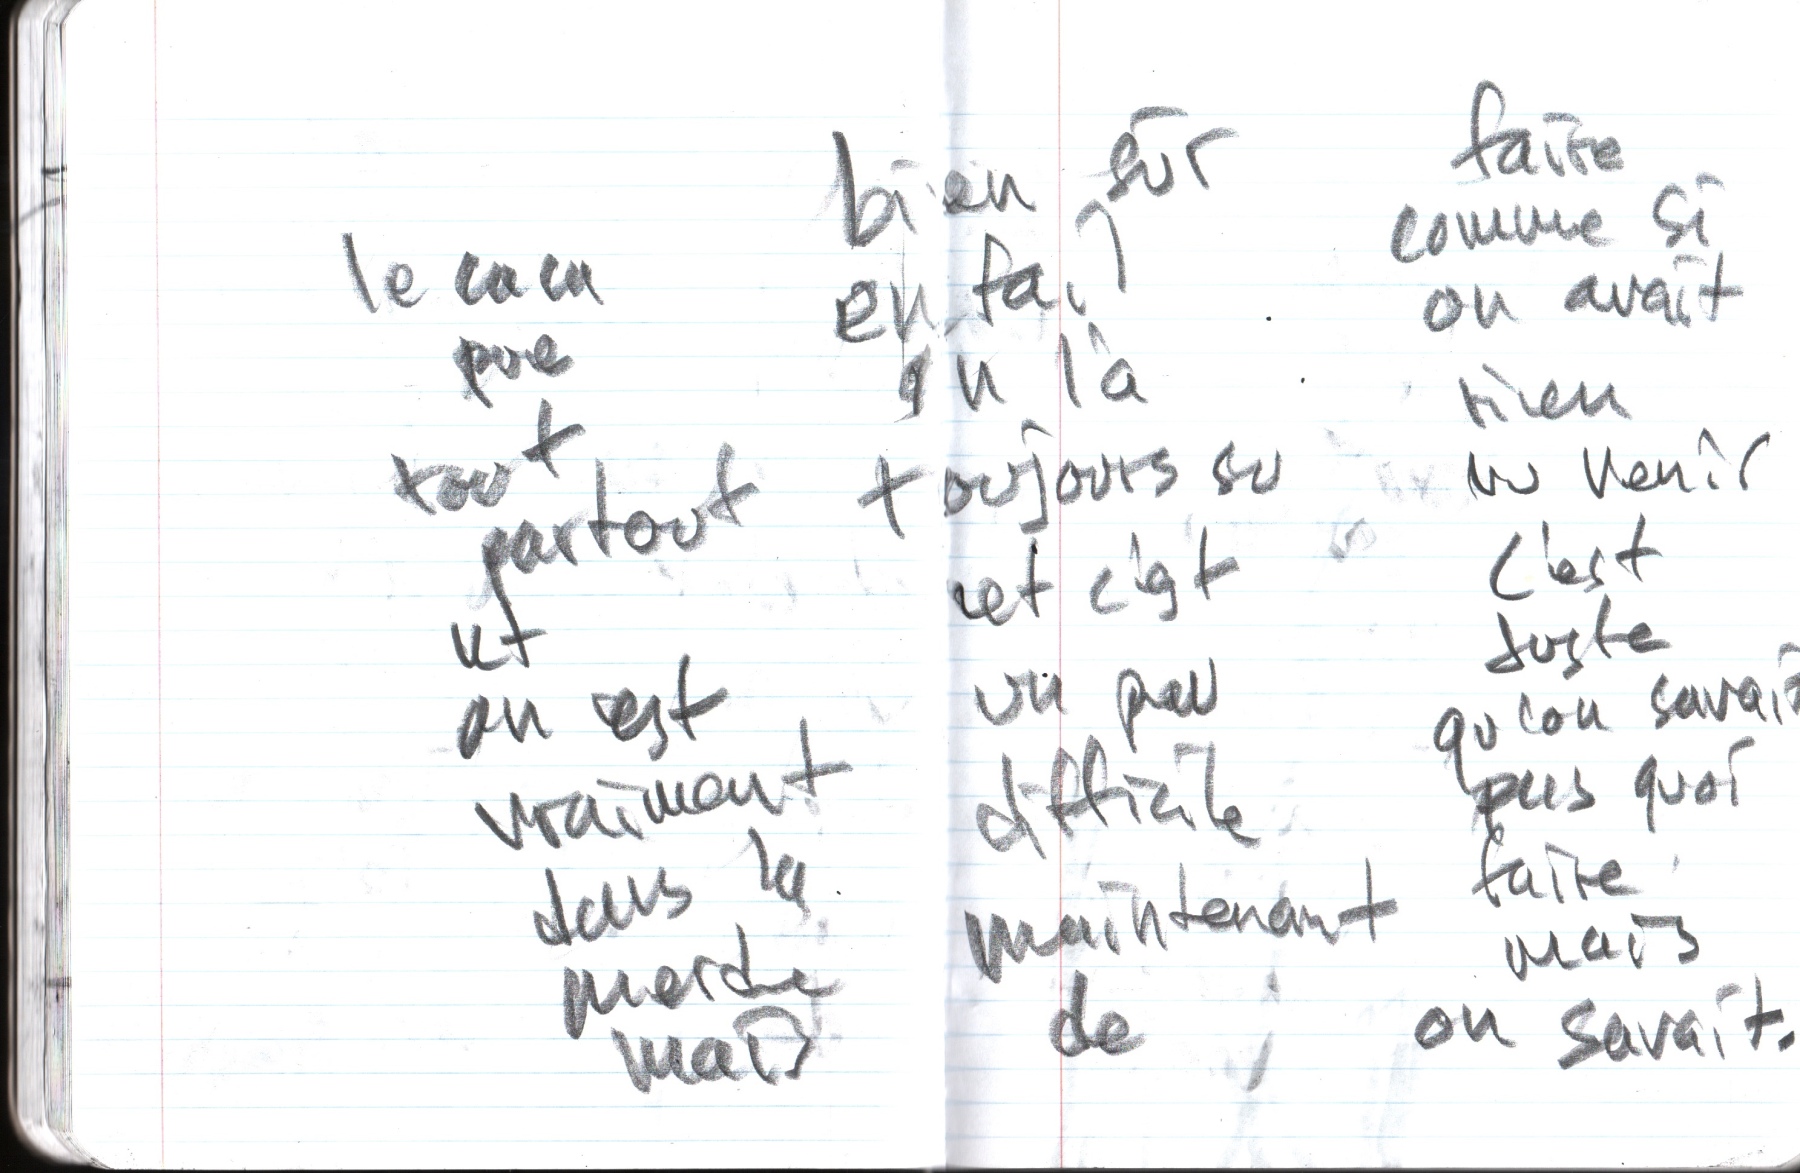 le caca
pue
tout
partout
et
on est
vraiment
dans la
merde
mais
bien sûr
en fait
on l'a
toujours su
et c'est
un peu
difficile
maintenant
de
faire
comme si
on avait
rien
vu venir
c'est
juste
qu'on savait
pas quoi
faire
mais
on savait.